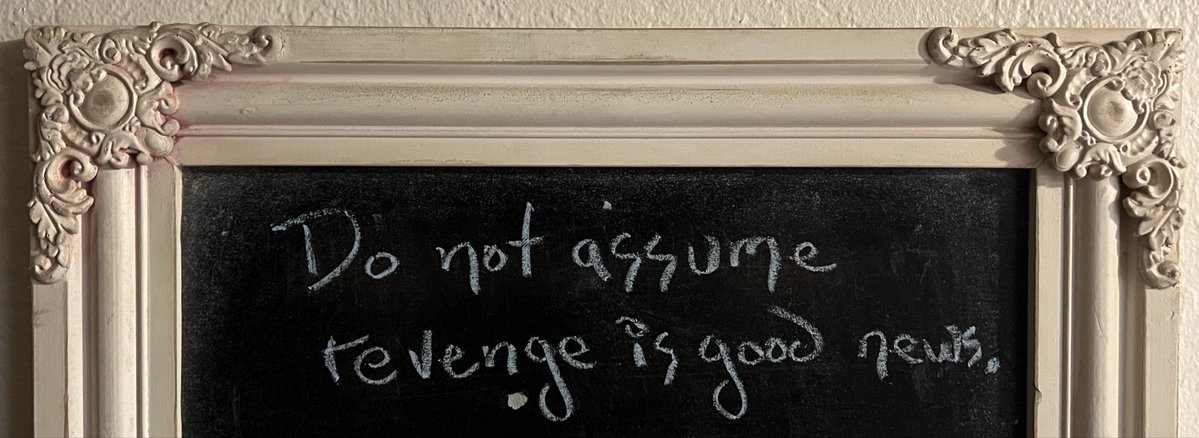 Do not assume
revenge is good news.